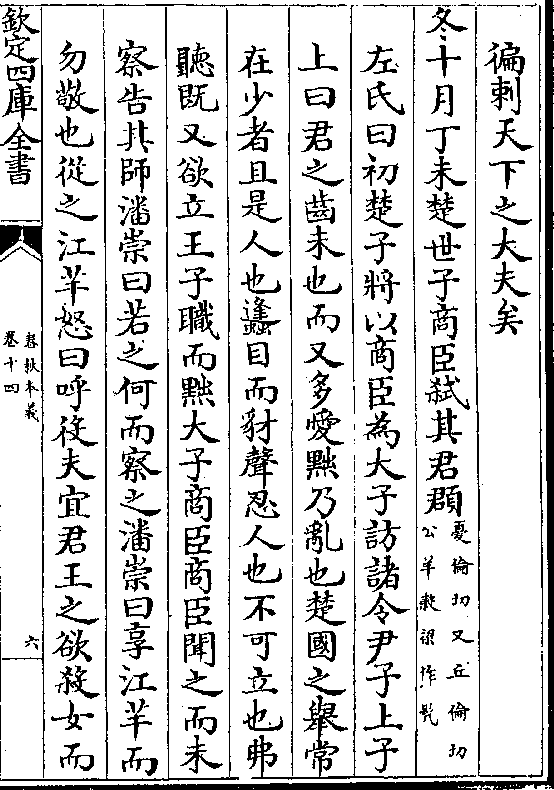 徧刺天下之大夫矣
冬十月丁未楚世子商臣弑其君頵憂倫切又丘倫切
公羊穀梁作髡
左氏曰初楚子將以商臣為大子訪諸令尹子上子
上曰君之齒未也而又多愛黜乃亂也楚國之舉常
在少者且是人也蠭目而豺聲忍人也不可立也弗
聽既又欲立王子職而黜大子商臣商臣聞之而未
察告其師潘崇曰若之何而察之潘崇曰享江芊而
勿敬也從之江芊怒曰呼役夫宜君王之欲殺女而
欽定四庫全書
春秋本義
卷十四
六